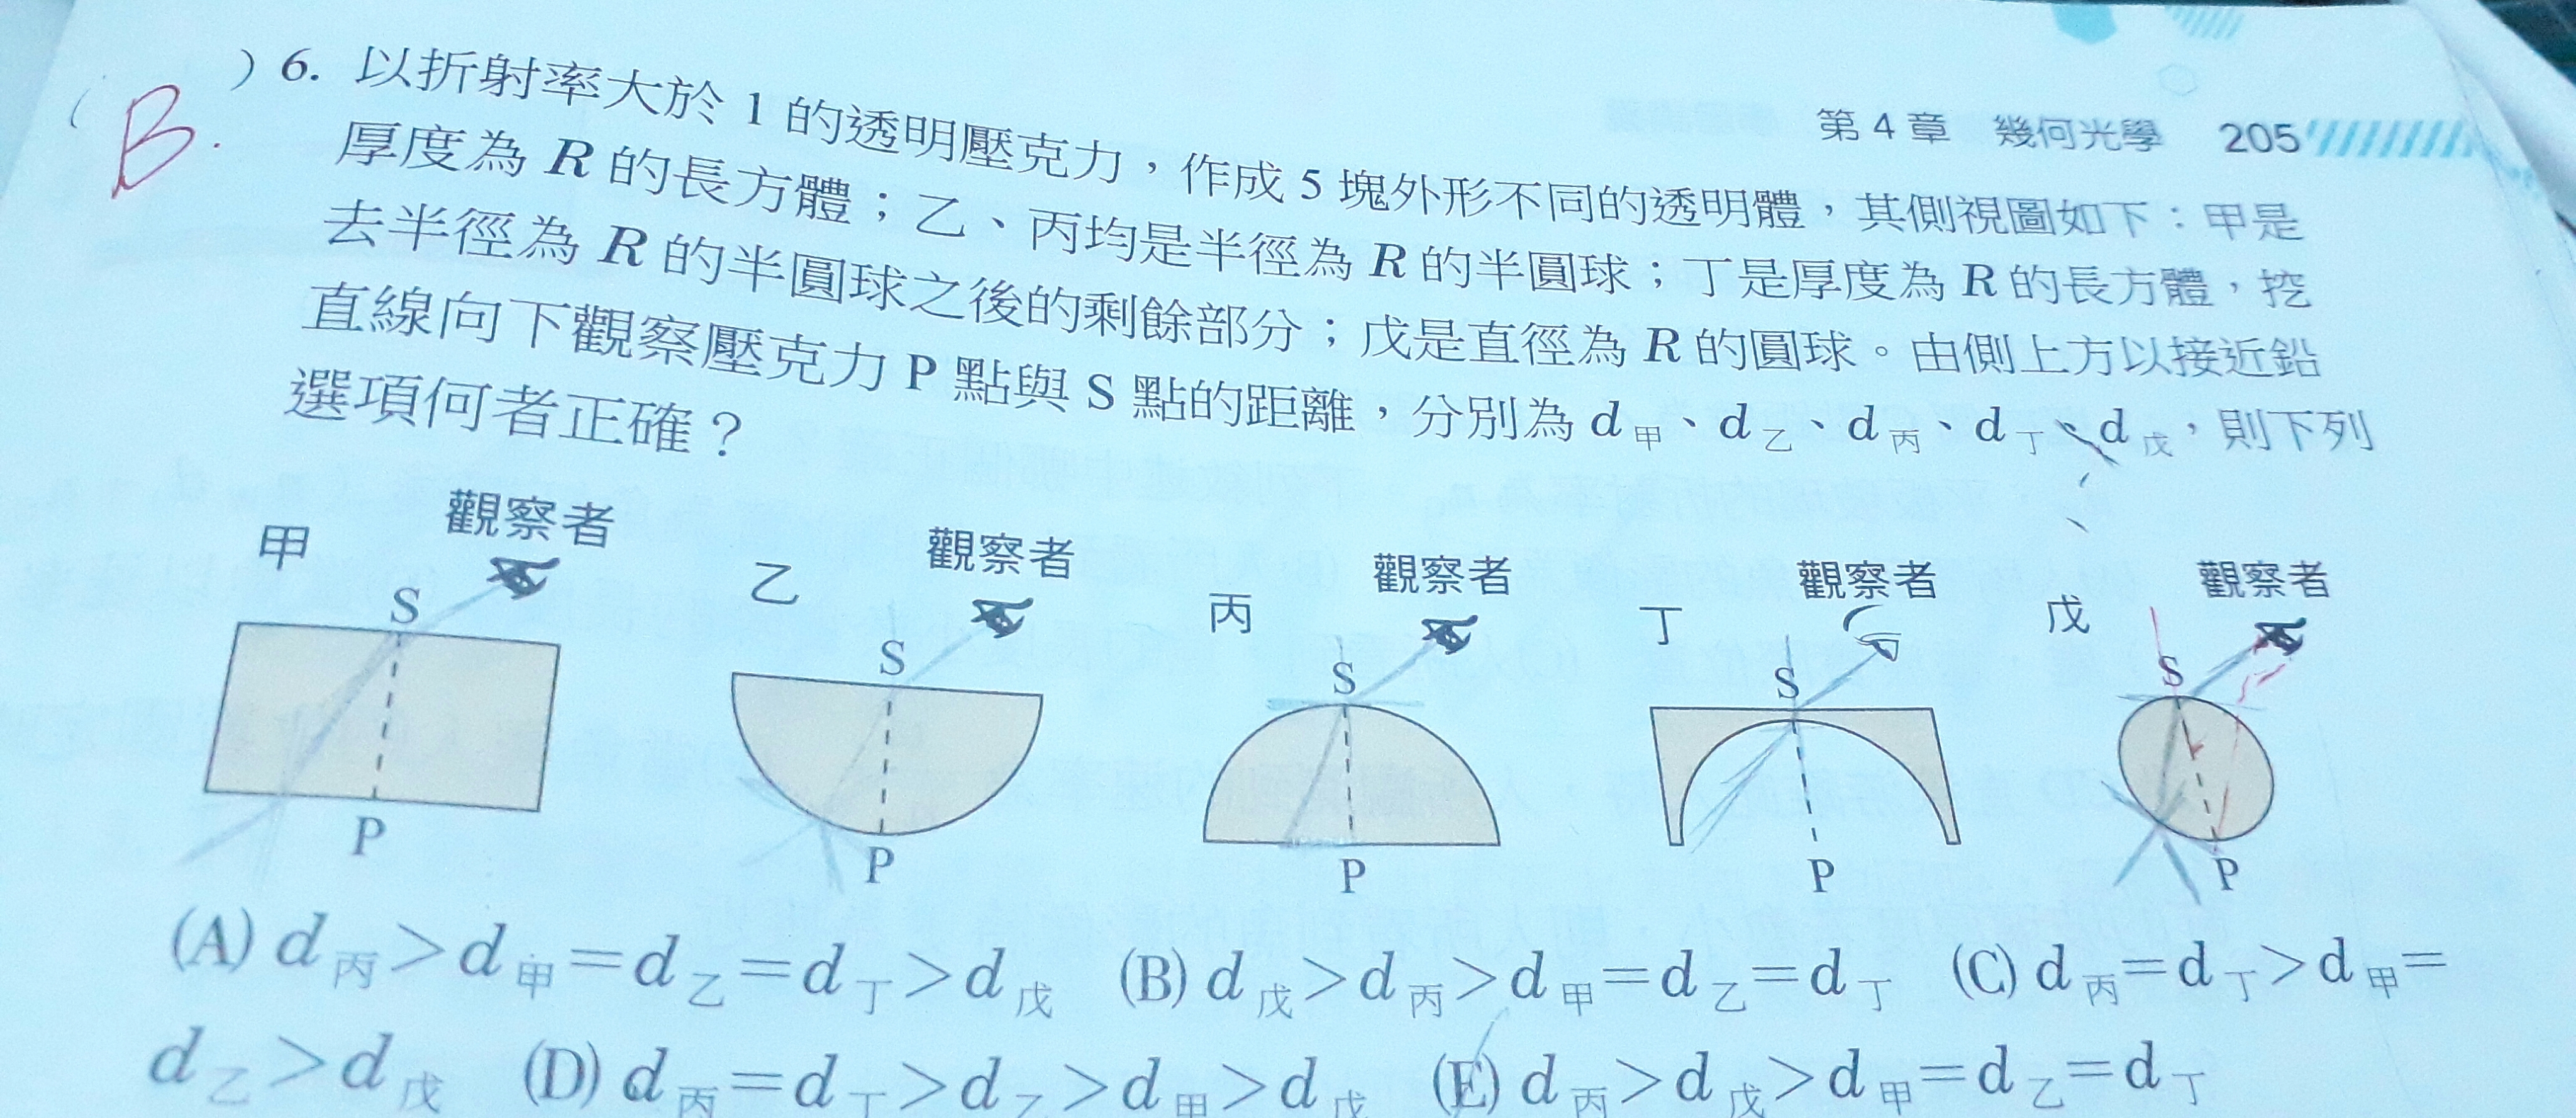 第4章 幾何光學 205
B.
( )6. 以折射率大於1的透明壓克力，作成5塊外形不同的透明體，其側視圖如下：甲是
厚度為R的長方體；乙、丙均是半徑為R的半圓球；丁是厚度為R的長方體，挖
去半徑為R的半圓球之後的剩餘部分；戊是直徑為R的圓球。由側上方以接近鉛
直線向下觀察壓克力P點與S點的距離，分別為d甲、d乙、d丙、d丁、d戊，則下列
選項何者正確？
甲 觀察者 S P
乙 觀察者 S P
丙 觀察者 S P
丁 觀察者 S P
戊 觀察者 S P
(A) d丙＞d甲＝d乙＝d丁＞d戊 (B) d戊＞d丙＞d甲＝d乙＝d丁 (C) d丙＝d丁＞d甲＝
d乙＞d戊 (D) d丙＝d丁＞d乙＞d甲＞d戊 (E) d丙＞d戊＞d甲＝d乙＝d丁